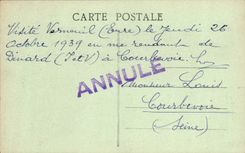 CARTE POSTALE
Visité Verneuil (Eure) le Jeudi 26
Octobre 1939 en me rendant de
Dinard (I et V) à Courbevoie.
ANNULÉ
Monsieur Louis
Courbevoie
(Seine)